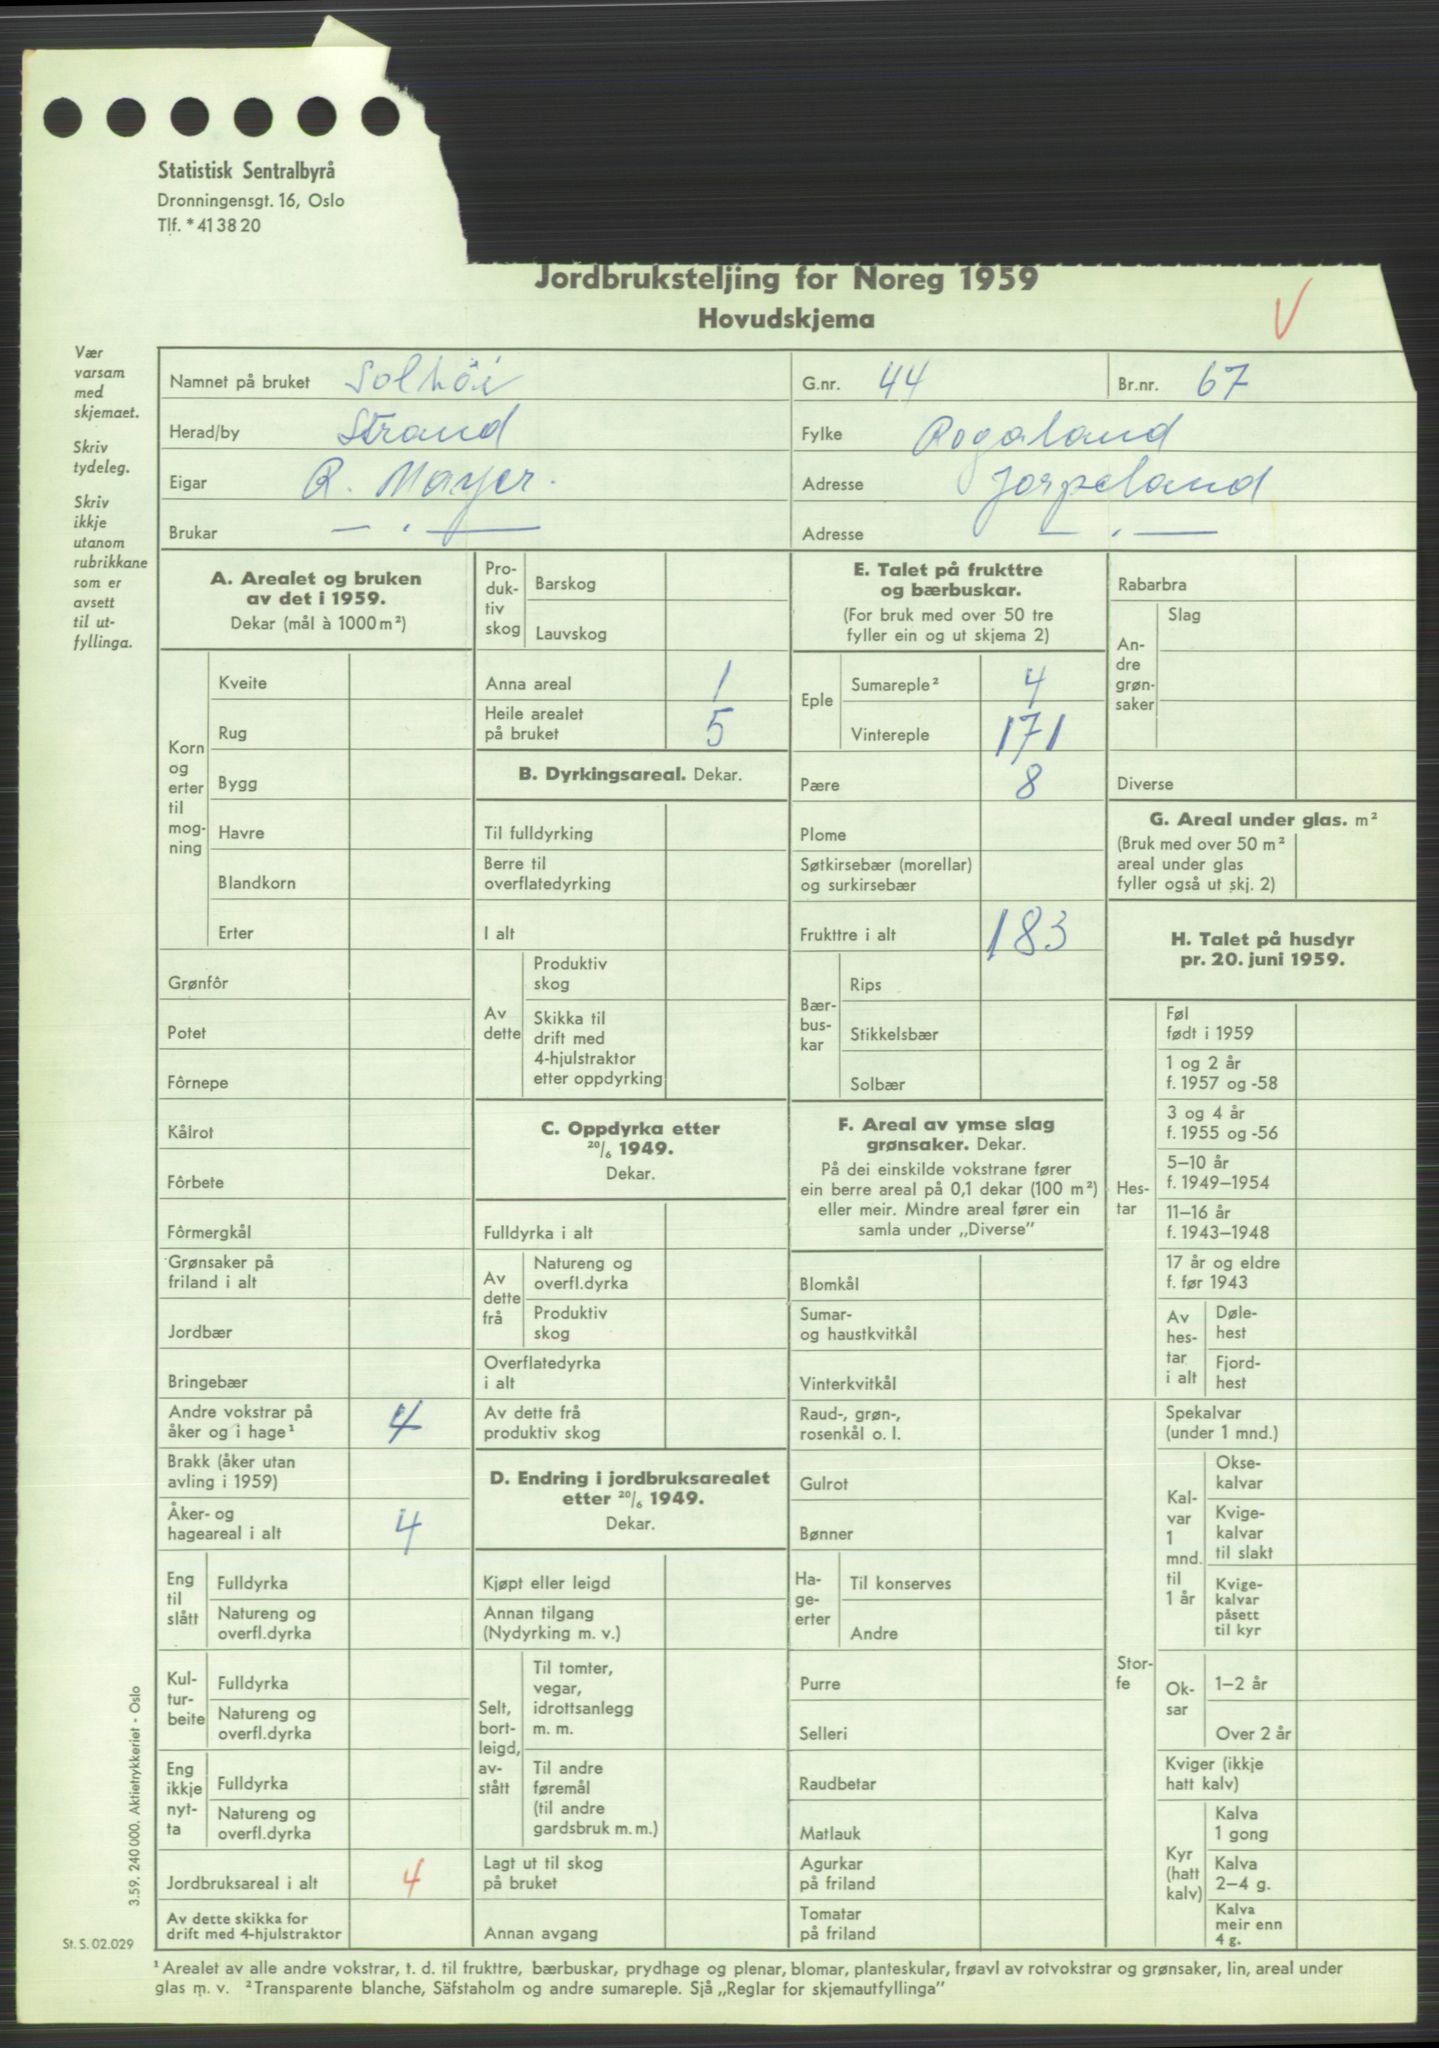 Statistisk Sentralbyrå
Dronningensgt. 16, Oslo
Tlf. *41 38 20
Jordbruksteljing for Noreg 1959
Hovudskjema
V
Vær
varsam
med
skjemaet.
Skriv
tydeleg.
Skriv
ikkje
utanom
rubrikkane
som er
avsett
til ut-
fyllinga.
Namnet på bruket Solhöi
G.nr. 44
Br.nr. 67
Herad/by Strand
Fylke Rogaland
Eigar R. Mayer.
Adresse Jorpeland
Brukar — . —
Adresse — . —
A. Arealet og bruken
av det i 1959.
Dekar (mål à 1000 m²)
Korn
og
erter
til
mog-
ning
Kveite
Rug
Bygg
Havre
Blandkorn
Erter
Grønfôr
Potet
Fôrnepe
Kålrot
Fôrbete
Fôrmergkål
Grønsaker på
friland i alt
Jordbær
Bringebær
Andre vokstrar på
åker og i hage¹ 4
Brakk (åker utan
avling i 1959)
Åker- og
hageareal i alt 4
Eng
til
slått
Fulldyrka
Natureng og
overfl.dyrka
Kul-
tur-
beite
Fulldyrka
Natureng og
overfl.dyrka
Eng
ikkje
nyt-
ta
Fulldyrka
Natureng og
overfl.dyrka
Jordbruksareal i alt 4
Av dette skikka for
drift med 4-hjulstraktor
Pro-
duk-
tiv
skog
Barskog
Lauvskog
Anna areal 1
Heile arealet
på bruket 5
B. Dyrkingsareal. Dekar.
Til fulldyrking
Berre til
overflatedyrking
I alt
Av
dette
Produktiv
skog
Skikka til
drift med
4-hjulstraktor
etter oppdyrking
C. Oppdyrka etter
20/6 1949.
Dekar.
Fulldyrka i alt
Av
dette
frå
Natureng og
overfl.dyrka
Produktiv
skog
Overflatedyrka
i alt
Av dette frå
produktiv skog
D. Endring i jordbruksarealet
etter 20/6 1949.
Dekar.
Kjøpt eller leigd
Annan tilgang
(Nydyrking m. v.)
Selt,
bort-
leigd,
av-
stått
Til tomter,
vegar,
idrottsanlegg
m. m.
Til andre
føremål
(til andre
gardsbruk m. m.)
Lagt ut til skog
på bruket
Annan avgang
E. Talet på frukttre
og bærbuskar.
(For bruk med over 50 tre
fyller ein og ut skjema 2)
Eple
Sumareple² 4
Vintereple 171
Pære 8
Plome
Søtkirsebær (morellar)
og surkirsebær
Frukttre i alt 183
Bær-
bus-
kar
Rips
Stikkelsbær
Solbær
F. Areal av ymse slag
grønsaker. Dekar.
På dei einskilde vokstrane fører
ein berre areal på 0,1 dekar (100 m²)
eller meir. Mindre areal fører ein
samla under „Diverse”
Blomkål
Sumar-
og haustkvitkål
Vinterkvitkål
Raud-, grøn-,
rosenkål o. l.
Gulrot
Bønner
Ha-
ge-
erter
Til konserves
Andre
Purre
Selleri
Raudbetar
Matlauk
Agurkar
på friland
Tomatar
på friland
Rabarbra
An-
dre
grøn-
saker
Slag
Diverse
G. Areal under glas. m²
(Bruk med over 50 m²
areal under glas
fyller også ut skj. 2)
H. Talet på husdyr
pr. 20. juni 1959.
Hes-
tar
Føl
født i 1959
1 og 2 år
f. 1957 og -58
3 og 4 år
f. 1955 og -56
5–10 år
f. 1949–1954
11–16 år
f. 1943–1948
17 år og eldre
f. før 1943
Av
hes-
tar
i alt
Døle-
hest
Fjord-
hest
Stor-
fe
Spekalvar
(under 1 mnd.)
Kal-
var
1
mnd.
til
1 år
Okse-
kalvar
Kvige-
kalvar
til slakt
Kvige-
kalvar
påsett
til kyr
Ok-
sar
1–2 år
Over 2 år
Kviger (ikkje
hatt kalv)
Kyr
(hatt
kalv)
Kalva
1 gong
Kalva
2–4 g.
Kalva
meir enn
4 g.
3.59. 240 000. Aktietrykkeriet - Oslo
St. S. 02.029
¹ Arealet av alle andre vokstrar, t. d. til frukttre, bærbuskar, prydhage og plenar, blomar, planteskular, frøavl av rotvokstrar og grønsaker, lin, areal under
glas m. v. ² Transparente blanche, Säfstaholm og andre sumareple. Sjå „Reglar for skjemautfyllinga”